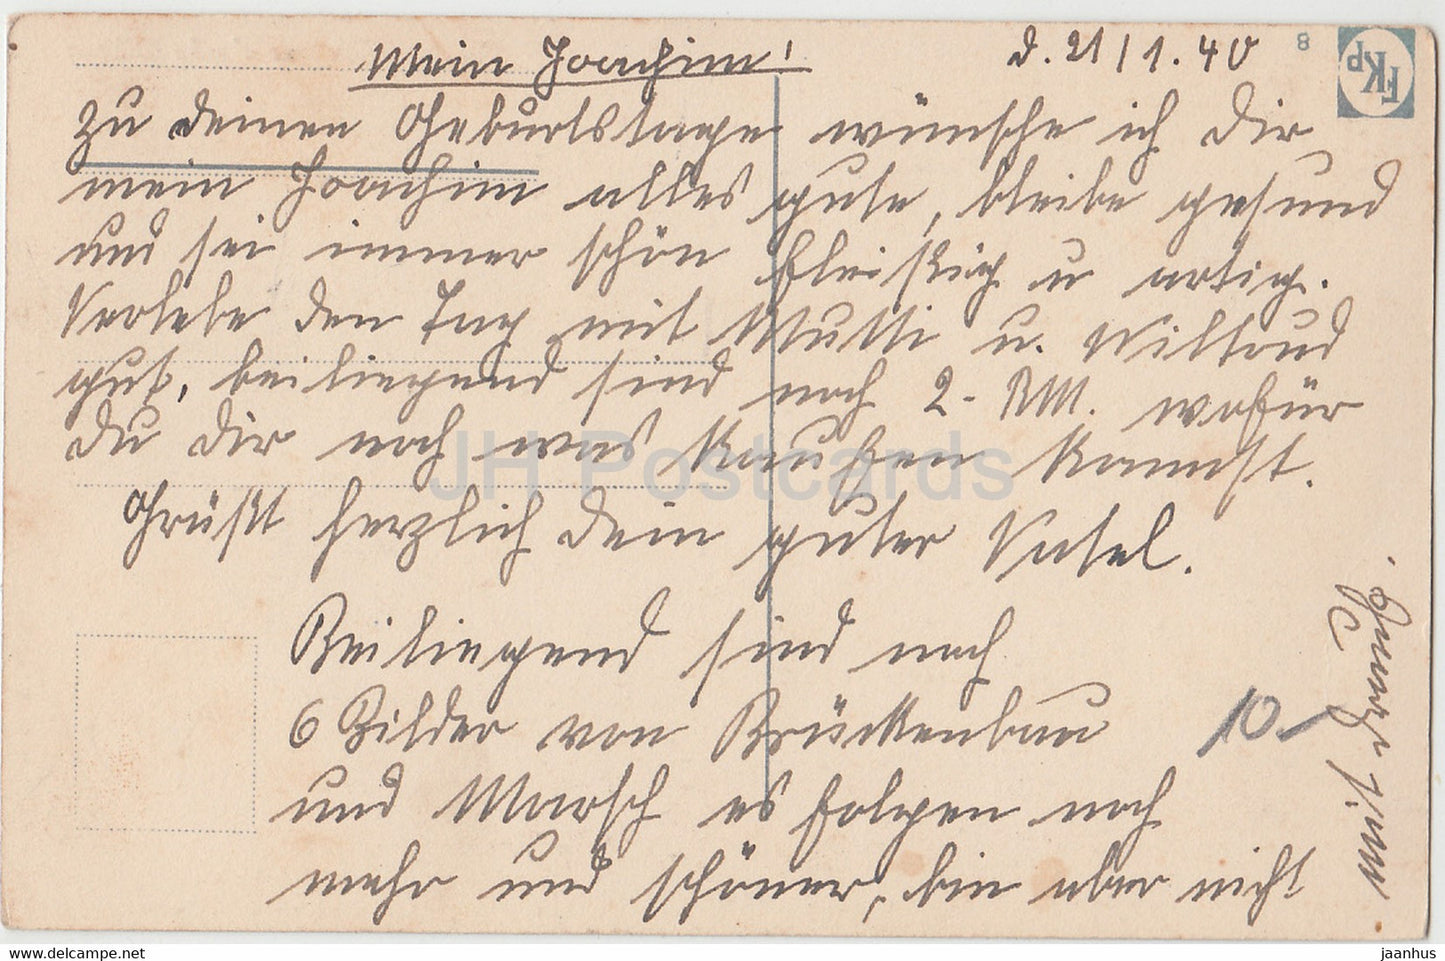 d. 21/1.40
8
FKp
Mein Joachim!
Zu deinen Geburtstage wünsche ich dir
mein Joachim alles gute, bleibe gesund
und sei immer schön fleißig u artig.
Verlebe den Tag mit Mutti u. Wiltrud
gut, beiliegend sind noch 2.- RM. wofür
du dir noch was kaufen kannst.
Grüßt herzlich dein guter Vatel.
Beiliegend sind noch
6 Bilder von Brückenbau
und Marsch es folgen noch
mehr und schöner, bin aber nicht
mit
10.-
JH Postcards
https://jhpostcards.com
jaanhus